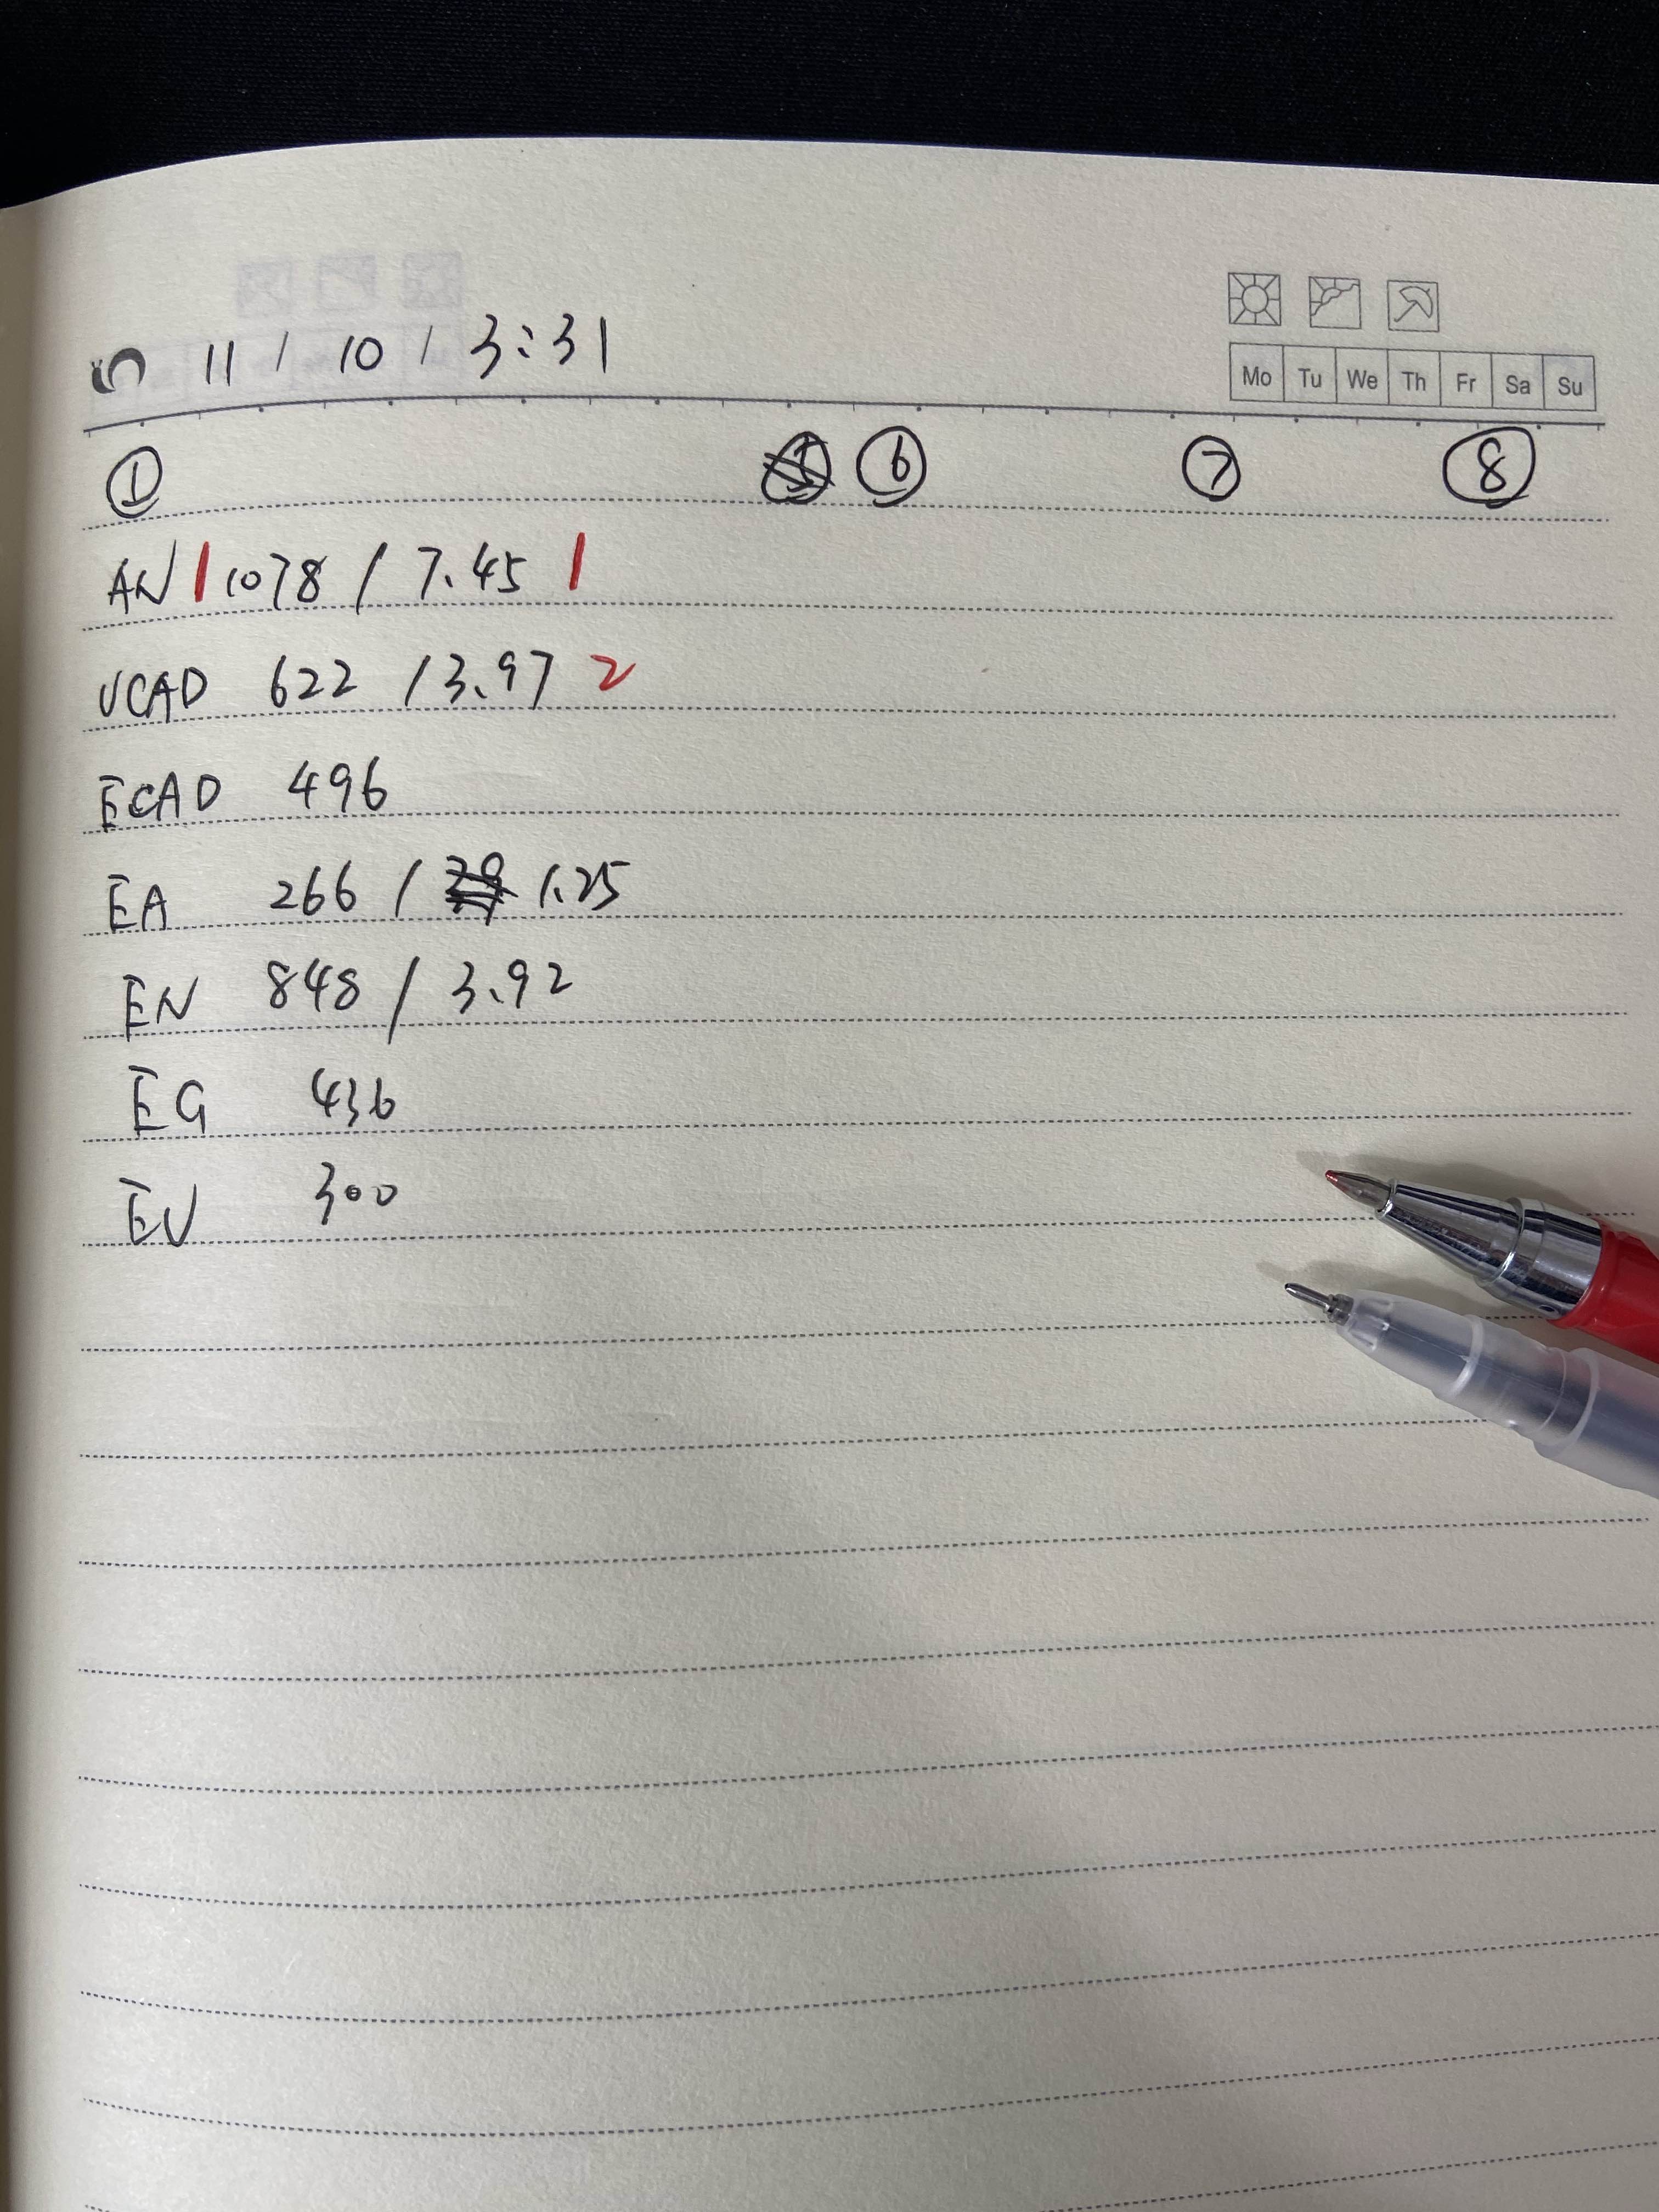 11 / 10 / 3:31
Mo Tu We Th Fr Sa Su
① ⑥ ⑦ ⑧
AN | 1078 / 7.45 1
UCAD 622 / 3.97 2
ECAD 496
EA 266 / 1.25
EN 848 / 3.92
EG 436
EU 300